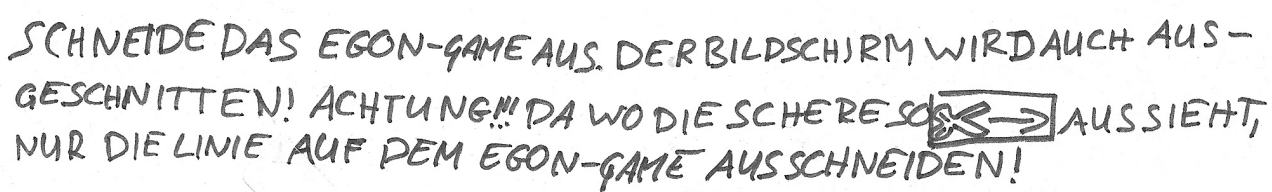 SCHNEIDE DAS EGON-GAME AUS. DER BILDSCHIRM WIRD AUCH AUS-
GESCHNITTEN! ACHTUNG!!! DA WO DIE SCHERE SO AUSSIEHT,
NUR DIE LINIE AUF DEM EGON-GAME AUSSCHNEIDEN!